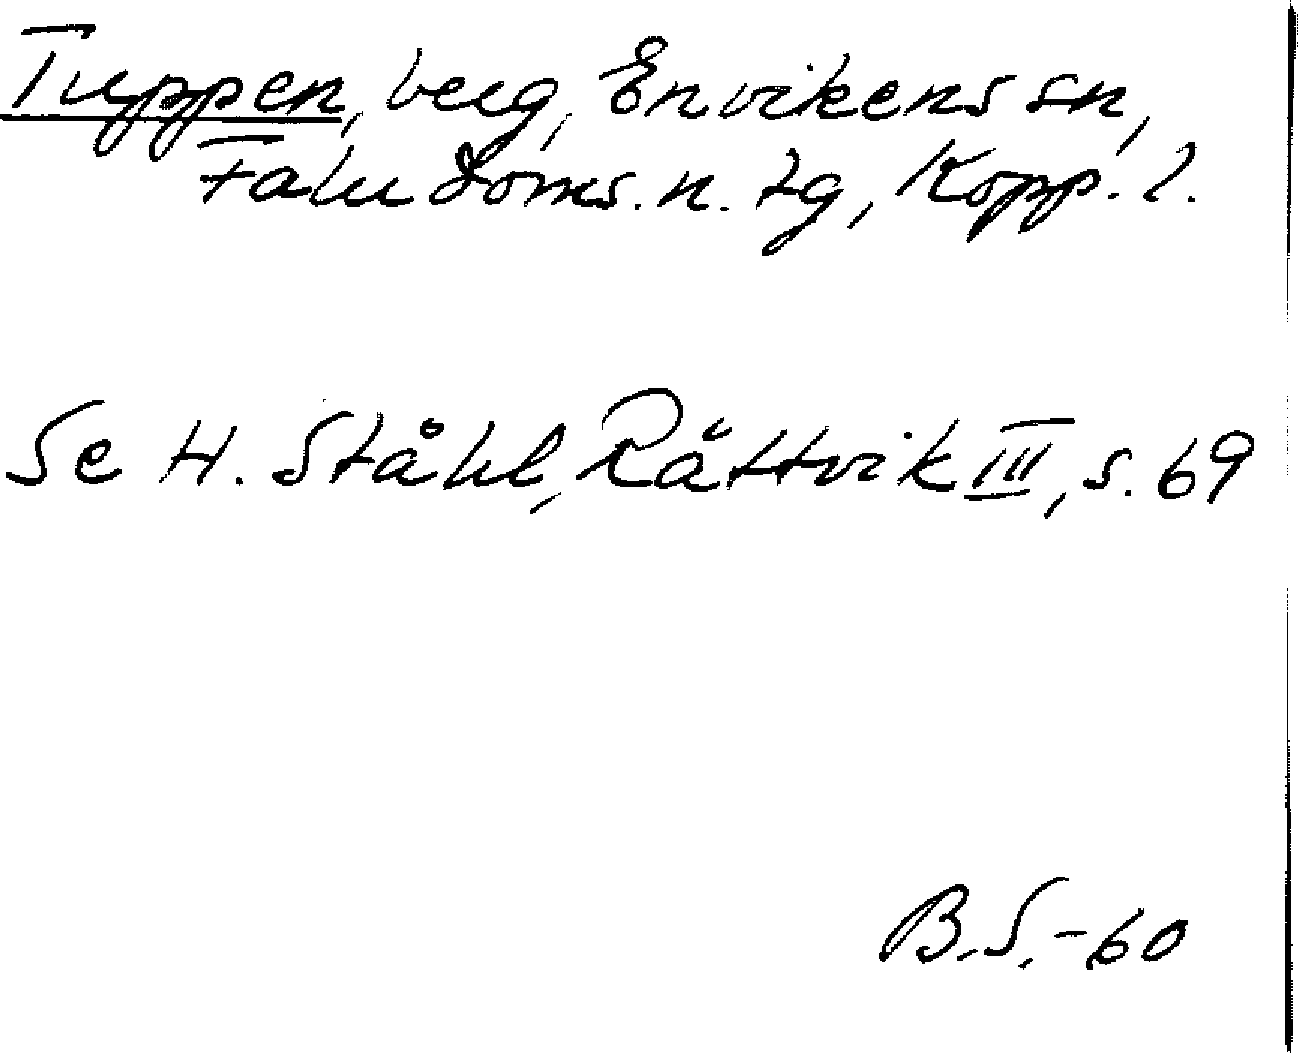 Tuppen, berg, Envikens sn,
Falu doms. n. tg, Kopp. l.
Se H. Ståhl, Rättvik III, s. 69
B.S.-60